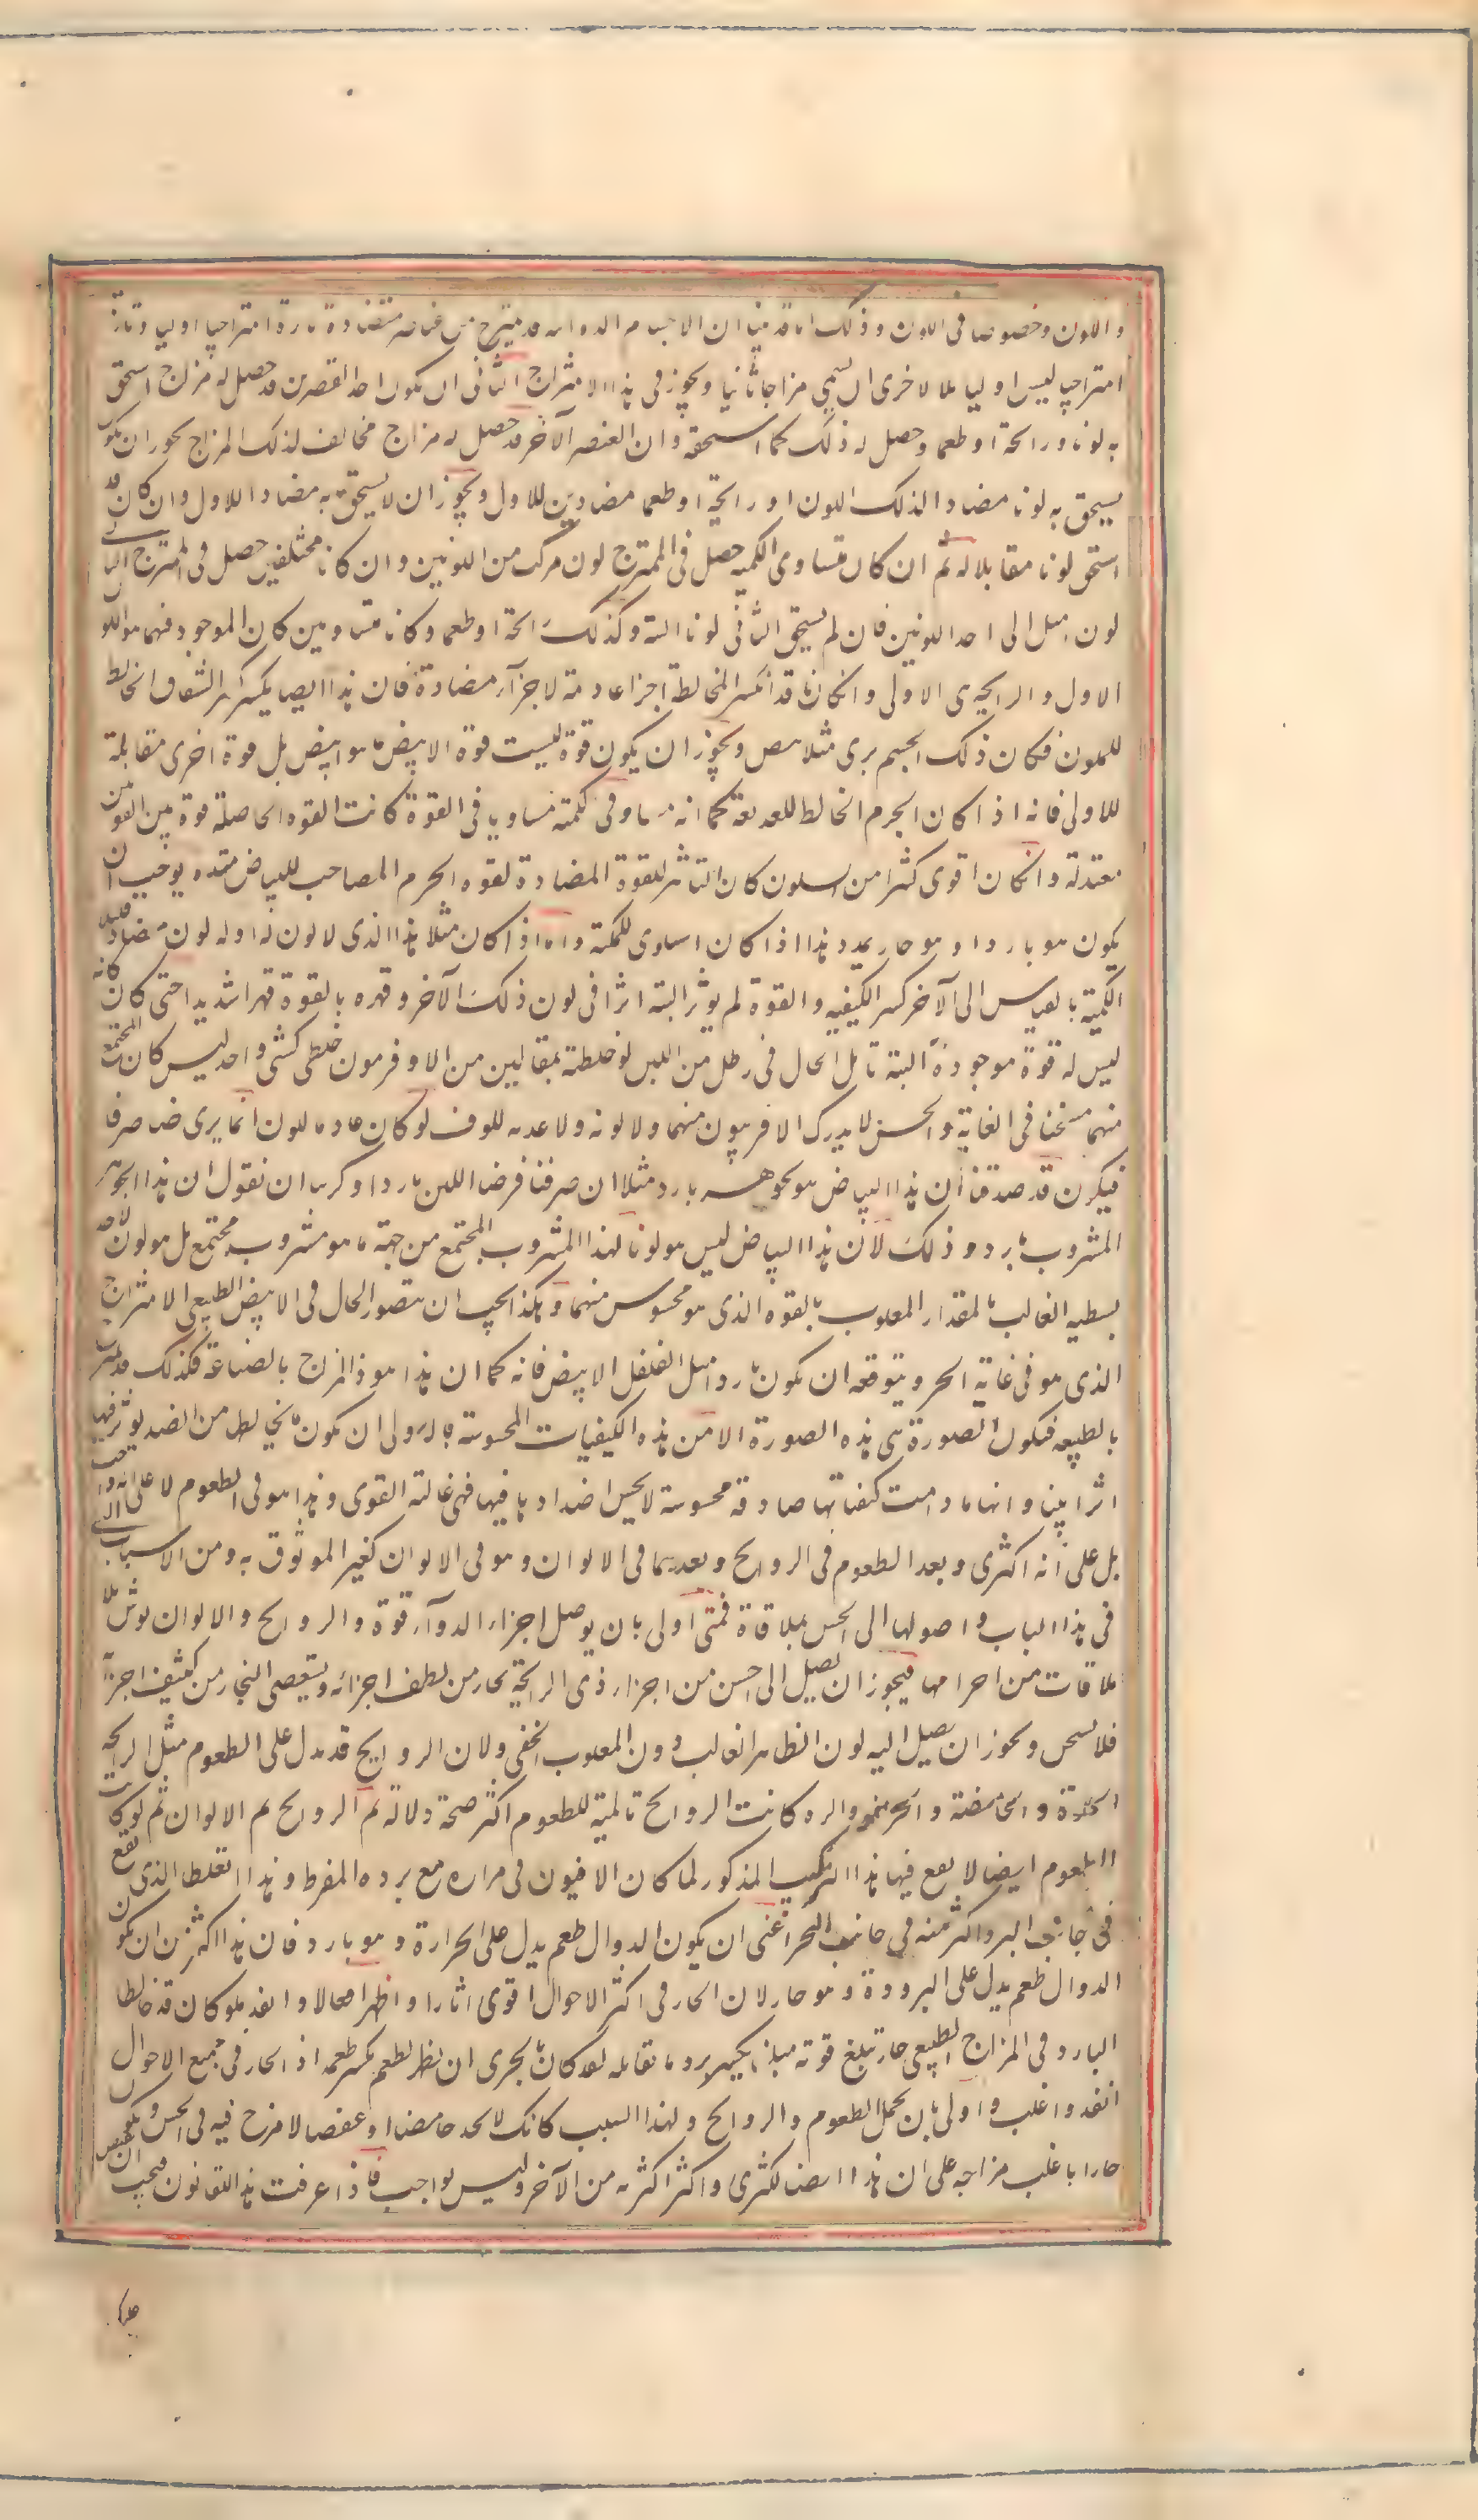 و اللون و خصوصا فى اللون و ذلك انا قد بينا ان الاجسام الدوائيه قد تمتزج من عناصر متضادة تارة امتزاجا اوليا و تارة
امتزاجيا ليس اوليا بل الاخرى ان يسمى مزاجا ثانيا و يجوز فى هذا الامتزاج الثانى ان يكون احد العنصرين قد حصل له مزاج استحق
به لونا و رائحة او طعما و حصل له ذلك كما استحقه و ان العنصر الآخر قد حصل له مزاج مخالف لذلك المزاج يجوز ان يكون
يستحق به لونا مضادا لذلك اللون او رايحة او طعما مضادين للاول و يجوز ان لا يستحق به مضادا للاول و ان كان قد
استحق لونا مقابلا له ثم ان كان متساوى الكميه حصل فى الممتزج لون مركب من اللونين و ان كانا مختلفين حصل فى الممتزج
لون اميل الى احد اللونين فان لم يستحق الثانى لونا البتة و كذلك رائحة او طعما و كانا متساويين كان الموجود فيهما هو اللون
الاول و الرايحة هى الاولى و ان كانا قد انكسر المخالطة اجزا عادمة لاجزآء مضادة فان هذا ايضا يكسر كسر الشفاف المخالط
للملون فكان ذلك الجسم يرى مثلا ابيض و يجوز ان يكون قوة ليست قوة الابيض بما هو ابيض بل قوة اخرى مقابلة
للاولى فانه اذا كان الجرم المخالط كما انه مساو فى كميته مساويا فى القوة كانت القوة الحاصلة قوة بين القوتين
معتدلة و ان كان اقوى كثيرا من كان التاثير للقوة المضادة لقوه الجرم المصاحب للبياض يوجب ان
يكون هو باردا و هو حار هذا اذا كان متساوى الكمية و اما اذا كان مثلا هذا الذى لا لون له او له لون مضاد قليل
الكمية بالقياس الى الآخر كثير الكيفيه و القوة لم يوثر البته اثرا فى لون ذلك الآخر و قهره بالقوة قهرا شديدا حتى كان كانه
ليس له قوة موجودة البتة تامل الحال فى رطل من اللبن لو خلطته بمثقالين من الاوفربيون خلطا كشئ واحد ليس كان المجتمع
منهما مسخنا فى الغاية و الحس لا يدرك الاوفربيون منهما و لا لونه و لا عدمه للون لو كان عادما للون انما يرى بياضا صرفا
فيكون قد صدقنا ان هذا البياض هو لجوهر بارد مثلا ان صرفنا فرضنا اللبن باردا و كذبنا ان نقول ان هذا الجوهر
المشروب بارد و ذلك لان هذا البياض ليس هو لونا لهذا المشروب المجتمع من جهة ما هو مشروب مجتمع بل هو لون لاحد
بسيطيه الغالب بالمقدار المغلوب بالقوه الذى هو محسوس منهما و هكذا يجب ان يتصور الحال فى الابيض الطبيعى الامتزاج
الذى هو فى غاية الحر و يتوقعه ان يكون باردا مثل الفلفل الابيض فانه كما ان هذا هو ذا يمزج بالصناعة فكذلك قد يمتزج
بالطبيعه فيكون الصورة هى هذه الصورة الا ان من هذه الكيفيات المحسوسه ما هو اولى ان يكون ما يخالطه من الضد يوثر فيها
اثرا بينا و انها ما دامت كيفياتها صادقة محسوسة لا يحس اضدادها فيها فهى غالبة القوى و هذا هو فى الطعوم لا على انه واجب
بل على انه اكثرى و بعد الطعوم فى الروايح و بعدهما فى الالوان و هو فى الالوان كغير الموثوق به و من الاسباب
فى هذا الباب و اصولها الى الحس بملاقاة فهى اولى بان يوصل من اجزاء الدوآء قوة و الروايح و الالوان يوثر بلا
ملاقات من اجرامها فيجوز ان يصل الى الحس من اجزاء ذى الرايحة بخار من لطيف اجزائه و يستعصى البخار من كثيف اجزآئه
فلا يتبخر و يجوز ان يصل اليه لون الظاهر الغالب دون المغلوب الخفى و لان الروايح قد يدل على الطعوم مثل الرايحه
الحلوة و الحامضة و الحريفه و المره كانت الروايح تالية للطعوم اكثر صحة دلالة ثم الروايح ثم الالوان ثم لو كانت
الطعوم ايضا لا يقع فيها هذا التركيب المذكور لما كان الافيون فى مراره مع برده المفرط و هذا الغلط الذى يقع
فى جانب البرد اكثر منه فى جانب الحر اعنى ان يكون الدوا له طعم يدل على الحرارة و هو بارد فان هذا اكثر من ان يكون
الدوا له طعم يدل على البرودة و هو حار لان الحار فى اكثر الاحوال اقوى اثارا و اظهر افعالا و انفذ فلو كان قد خالط
البارد فى المزاج الطبيعى حار تبلغ قوته مبلغا يكسر برد ما يقابله لقد كان بالحرى ان يظهر لطعمه كسر طعمه اذ الحار فى جميع الاحوال
انفذ و اغلب و اولى بان يحمل الطعوم و الروايح و لهذا السبب كانك لا تجد حامضا او عفصا لا مزج فيه فى الحس و يكون
حارا باغلب مزاجه على ان هذا ايضا اكثرى و اكثر اكثريه من الآخر و ليس بواجب فاذا عرفت هذا القانون فيجب ان